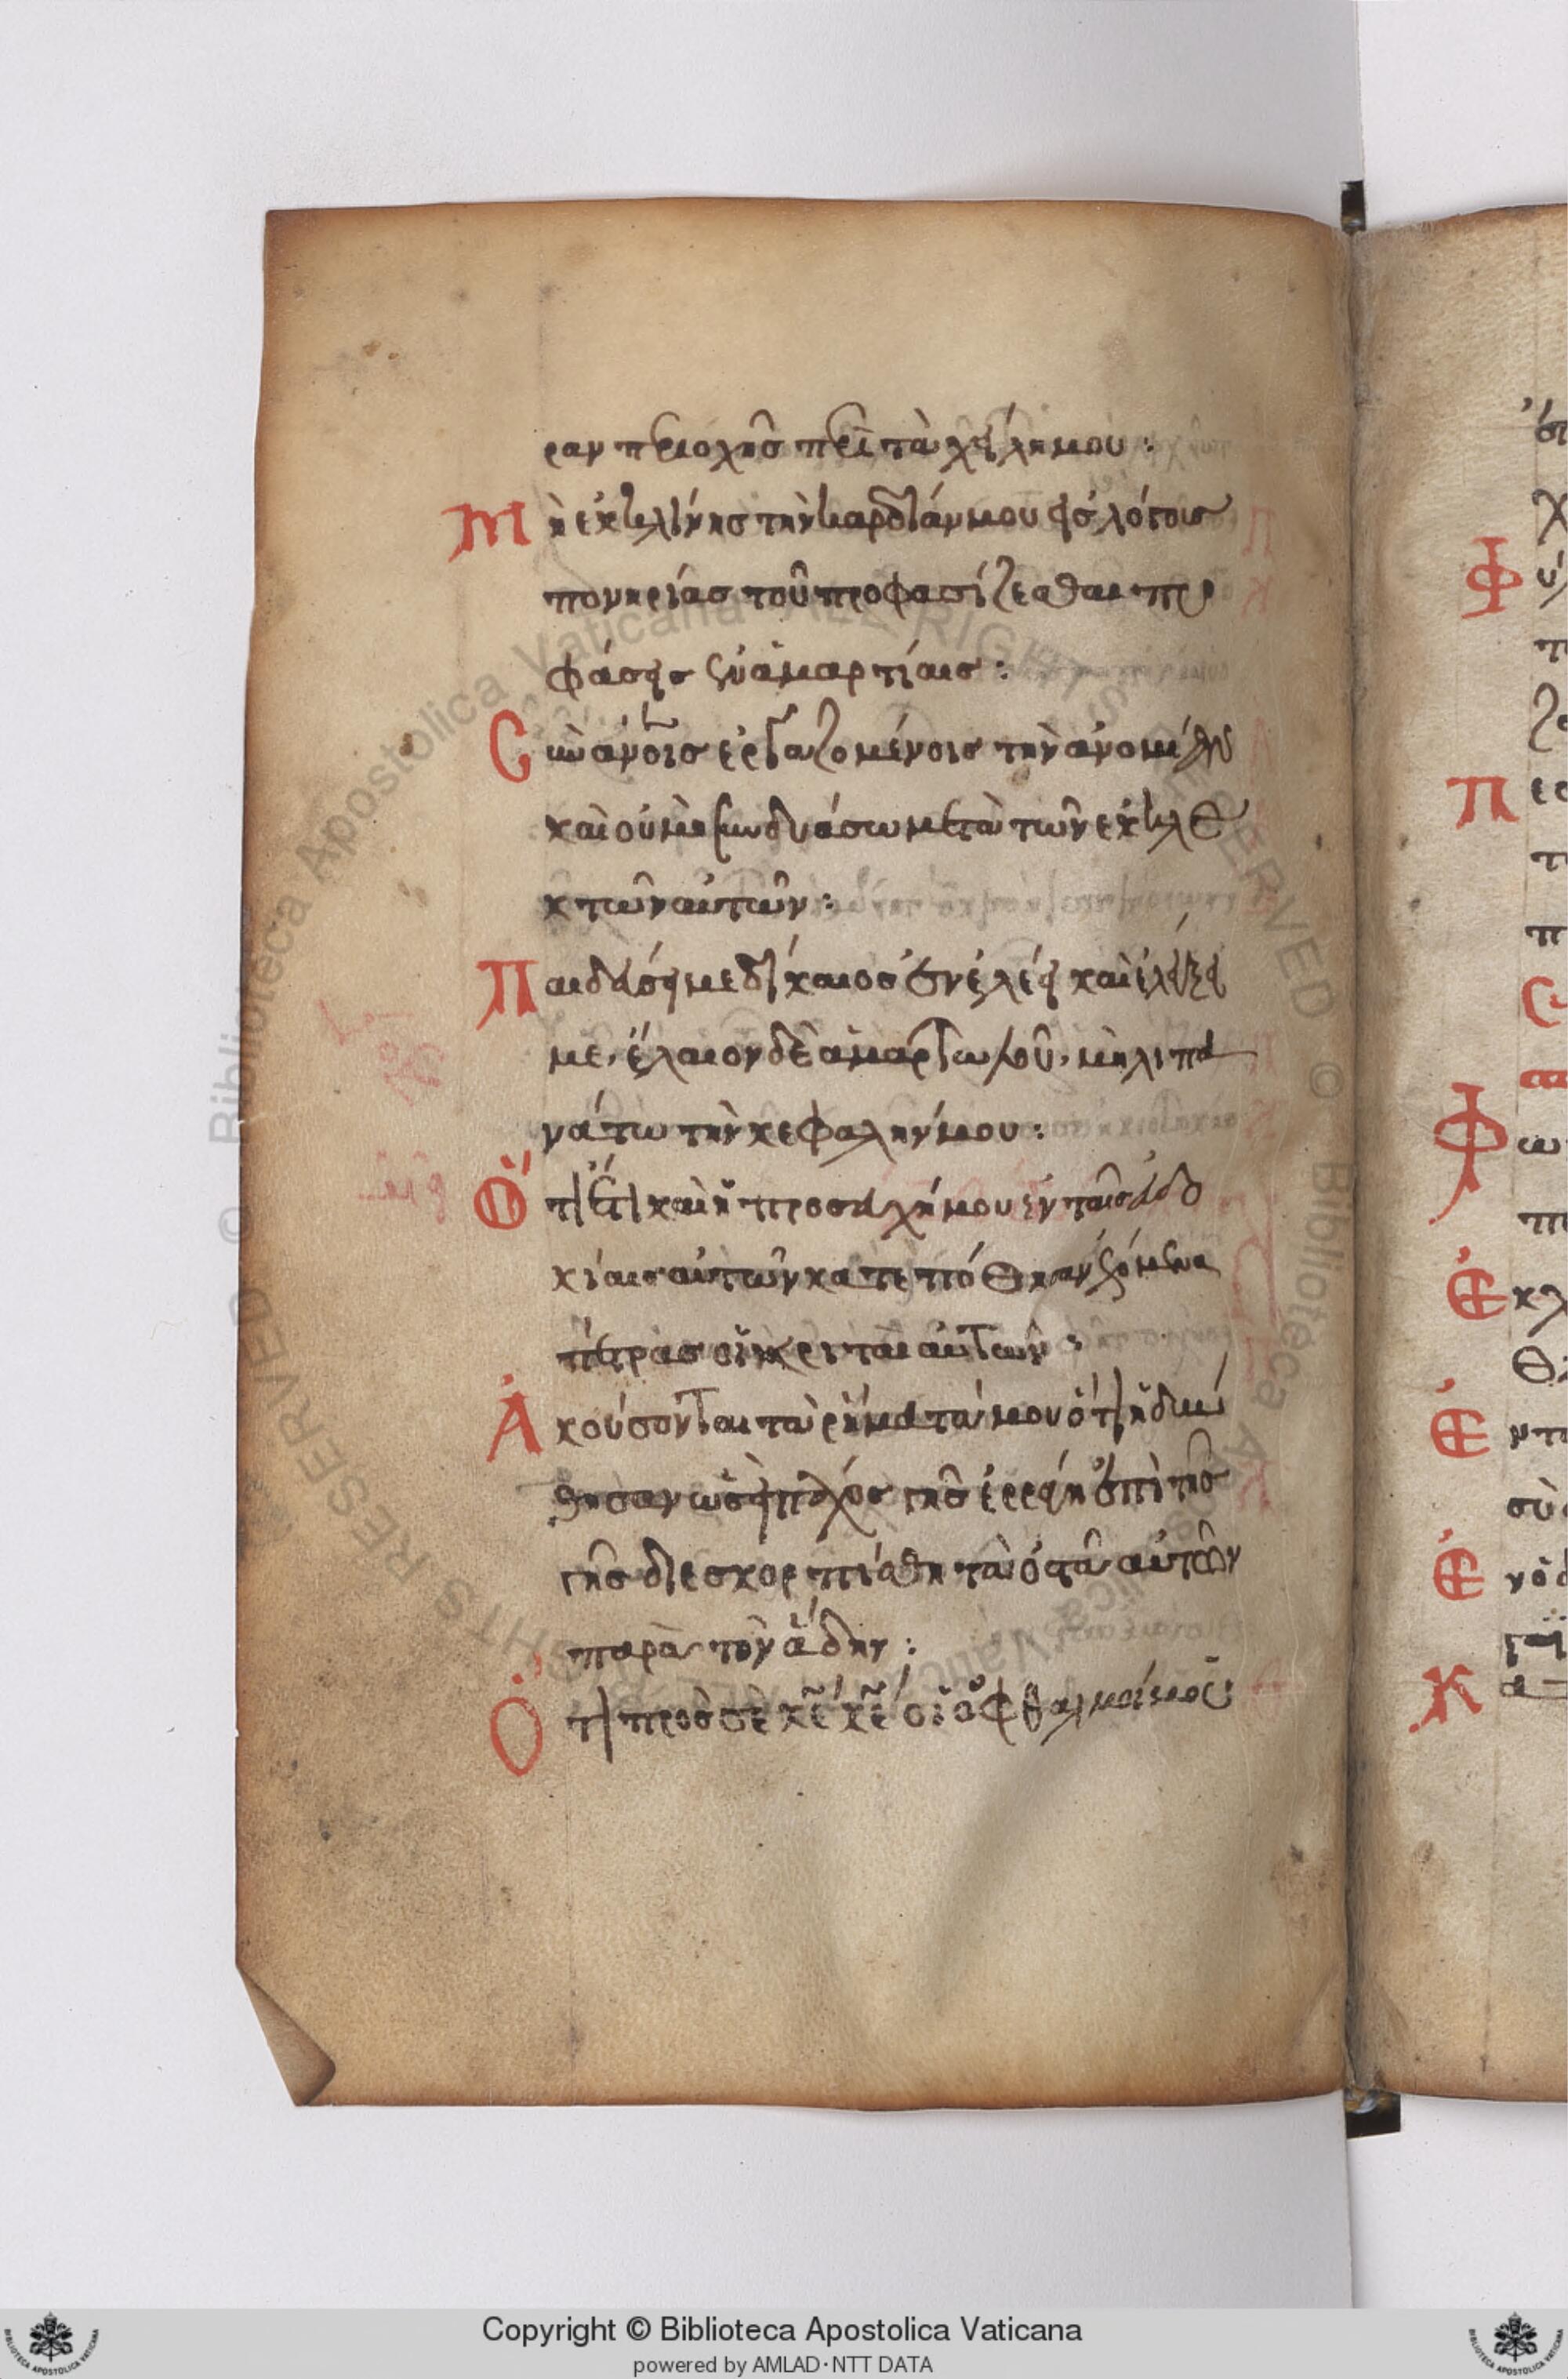 ραν περιοχῆς περὶ τὰ χείλη μου :
Μὴ ἐκκλίνης τὴν καρδίαν μου εἰς λόγοις
πονηρίας τοῦ προφασίζεσθαι προ
φάσεις ἐν ἁμαρτίαις :
Σὺν ἀνοις ἐργαζομένοις τὴν ἀνομίαν
καὶ οὐ μὴ συνδυάσω μετὰ τῶν ἐκλε
κτῶν αὐτῶν :
Παιδεύσει με δίκαιος ἐν ἐλέει καὶ ἐλέγξει
με, ἔλαιον δὲ ἁμαρτωλοῦ, μὴ λιπα
νάτω τὴν κεφαλήν μου :
Ὅτι ἔτι καὶ ἡ προσευχή μου ἐν ταῖς εὐδο
κίαις αὐτῶν κατεπόθησαν ἐχόμενα
πέτρας οἱ κριταὶ αὐτῶν :
Ἀκούσονται τὰ ῥήματά μου ὅτι ἡδύν
θησαν ὡσεὶ πάχος γῆς ἐρράγη ἐπὶ τῆς
γῆς διεσκορπίσθη τὰ ὀστᾶ αὐτῶν
παρὰ τὸν ἅδην :
Ὅτι πρὸς σὲ κε κε οἱ ὀφθαλμοί μου
Copyright © Biblioteca Apostolica Vaticana
powered by AMLAD·NTT DATA